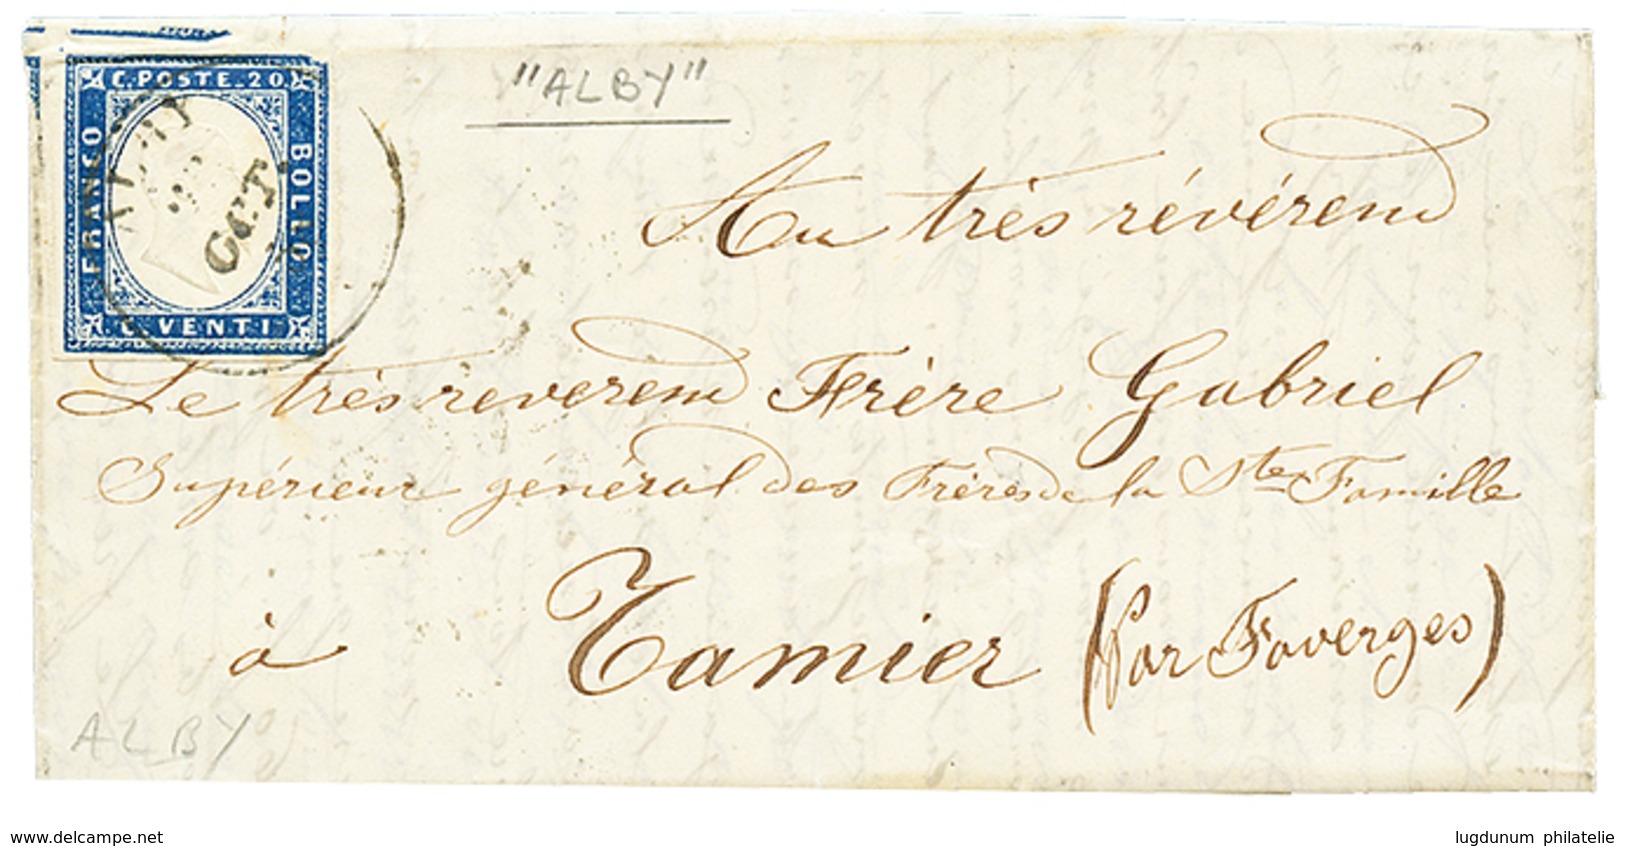 C. POSTE. 20
FRANCO
BOLLO
C. VENTI
ALBY
OTT
"ALBY"
Au très révérend
Le très reverend Frère Gabriel
Supérieur général des Frères de la Ste Famille
à Tamier (par Faverges)
ALBY
www.delcampe.net
lugdunum philatelie